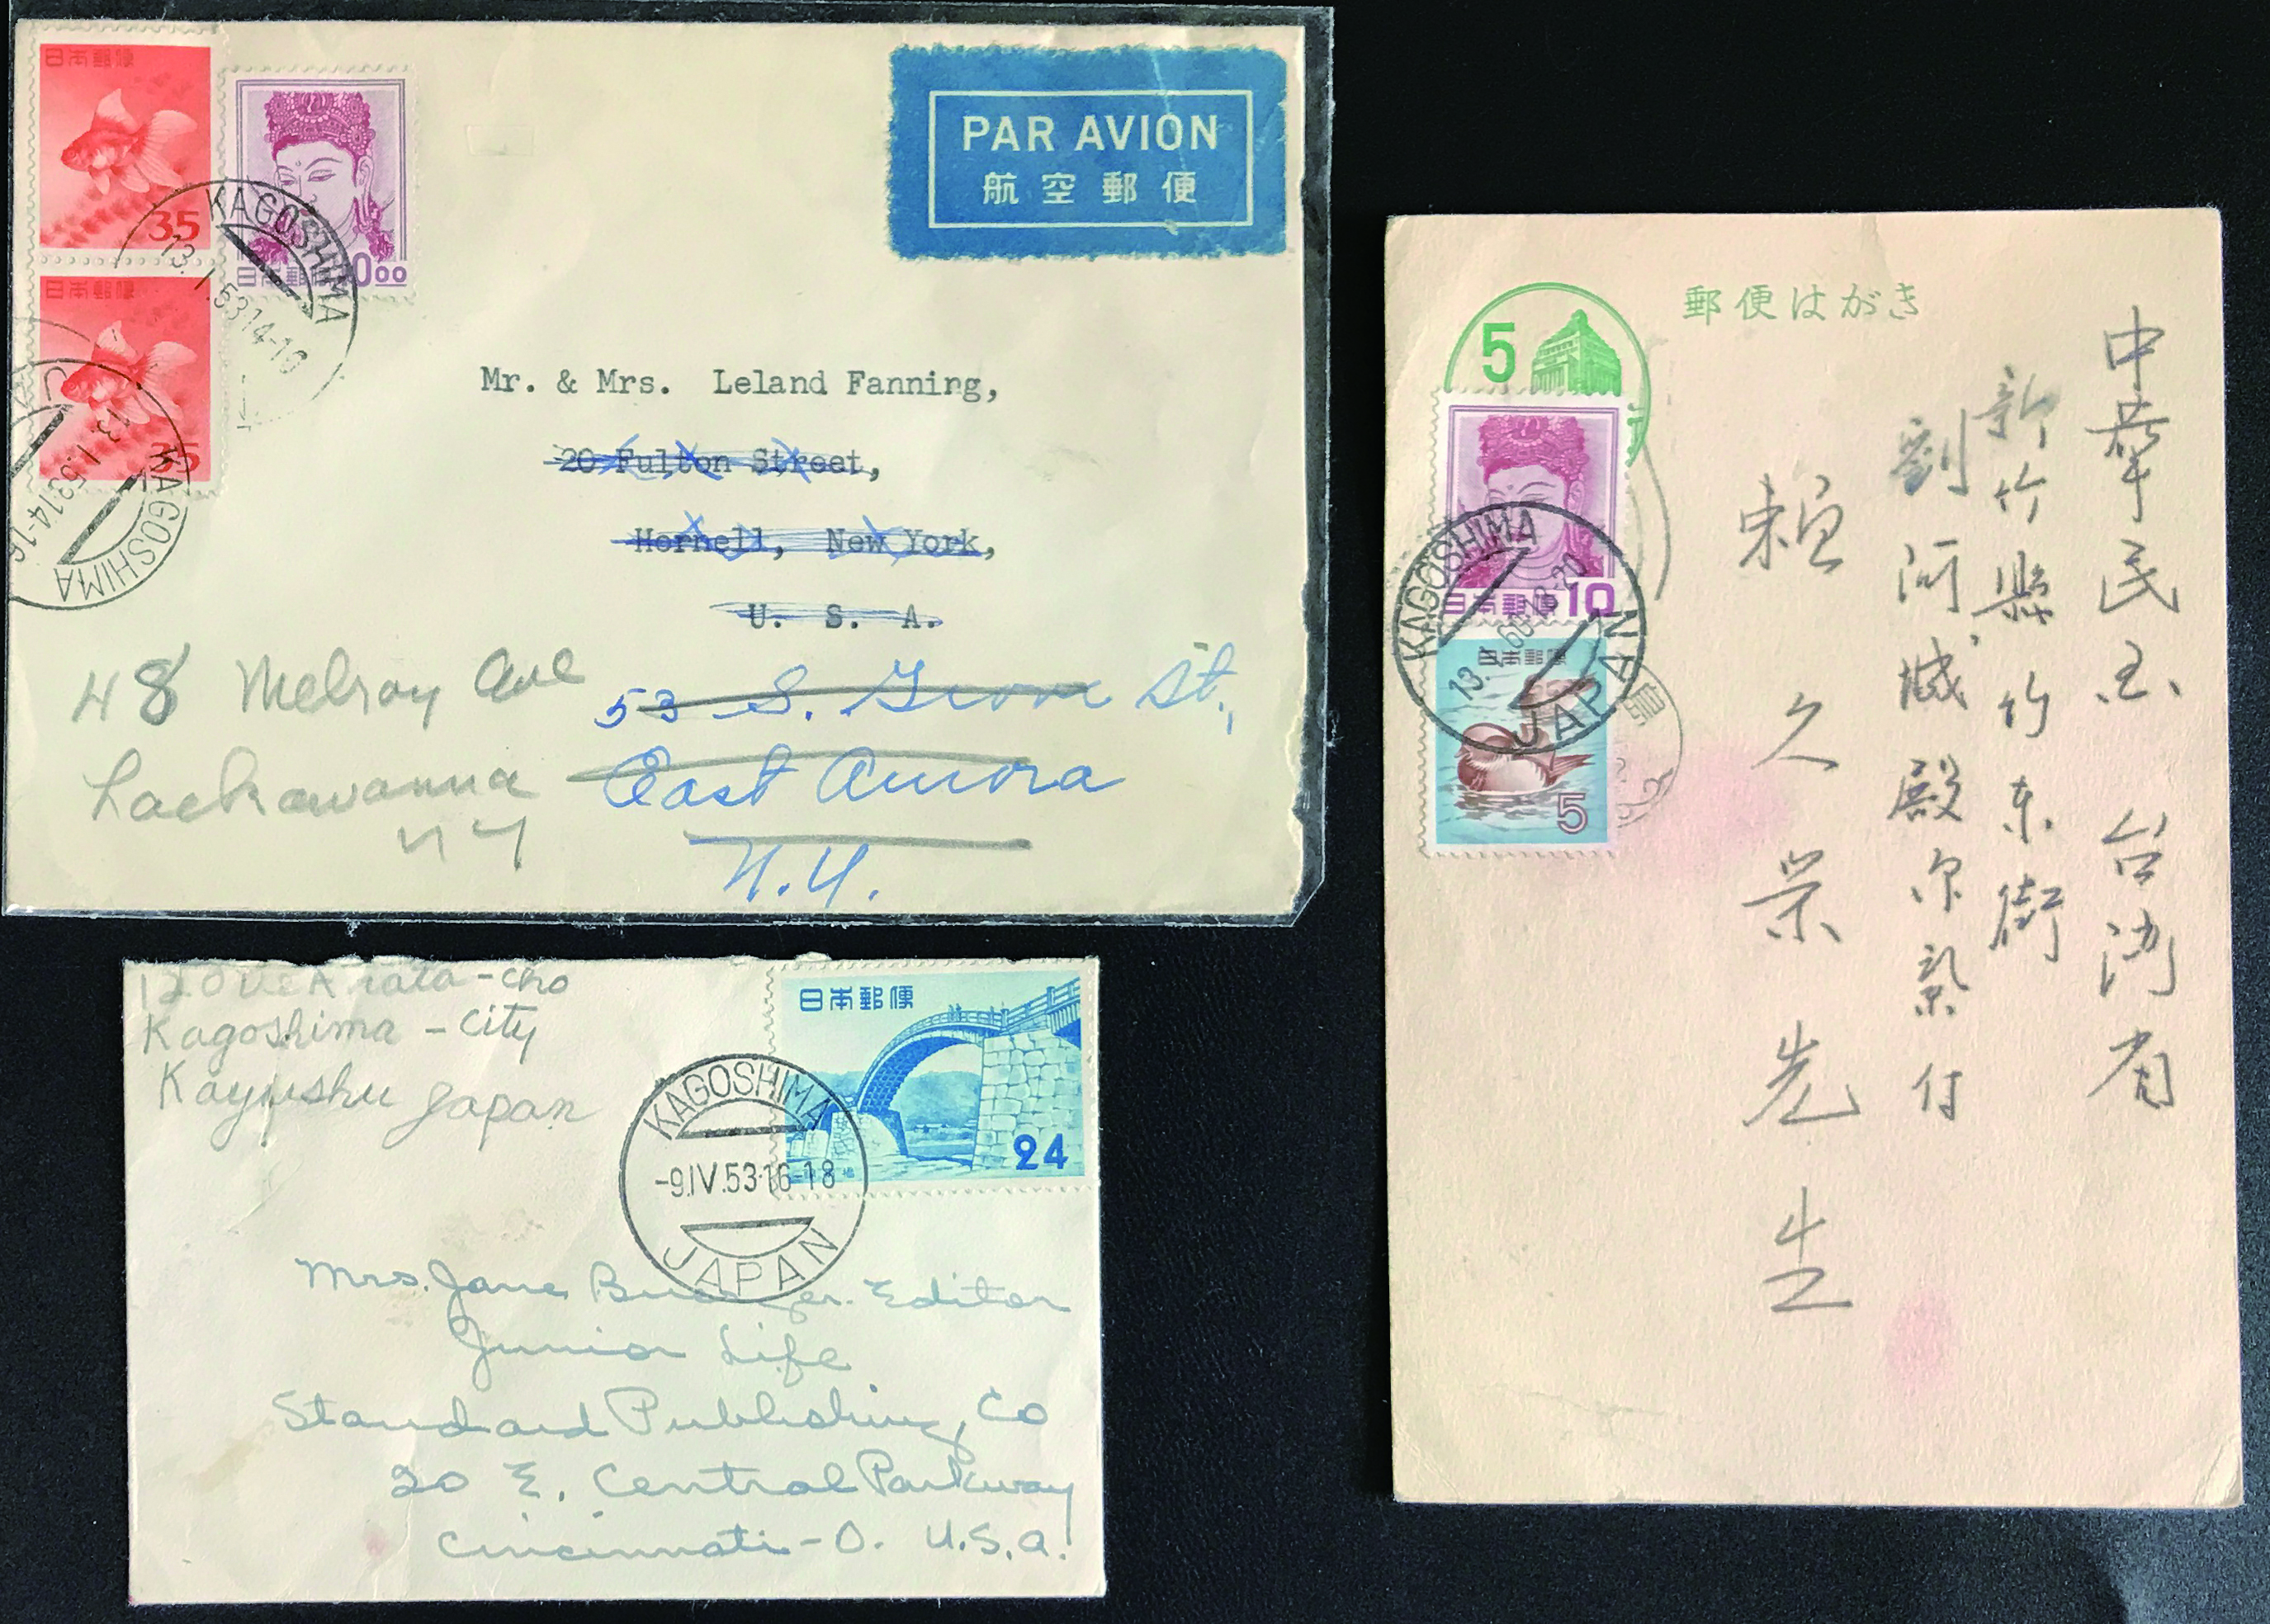 日本郵便
35
日本郵便
35
日本郵便
00
KAGOSHIMA
13.I.53 14-16
KAGOSHIMA
13.I.53 14-16
PAR AVION
航空郵便
Mr. & Mrs. Leland Fanning,
20 Fulton Street,
Hornell, New York,
U. S. A.
53 S. Grove St.,
East Aurora
N.Y.
48 Melroy Ave
Lackawanna
NY
Arata-cho
Kagoshima-City
Kayushu Japan
日本郵便
24
KAGOSHIMA
-9.IV.53.16-18
JAPAN
Mrs. Jane Editor
Junior Life
Standard Publishing, Co
20 E. Central Parkway
Cincinnati-O. U.S.A.
5
郵便はがき
日本郵便 10
KAGOSHIMA
JAPAN
日本郵便
5
島
中華民国 台湾省
新竹縣竹东街
先生